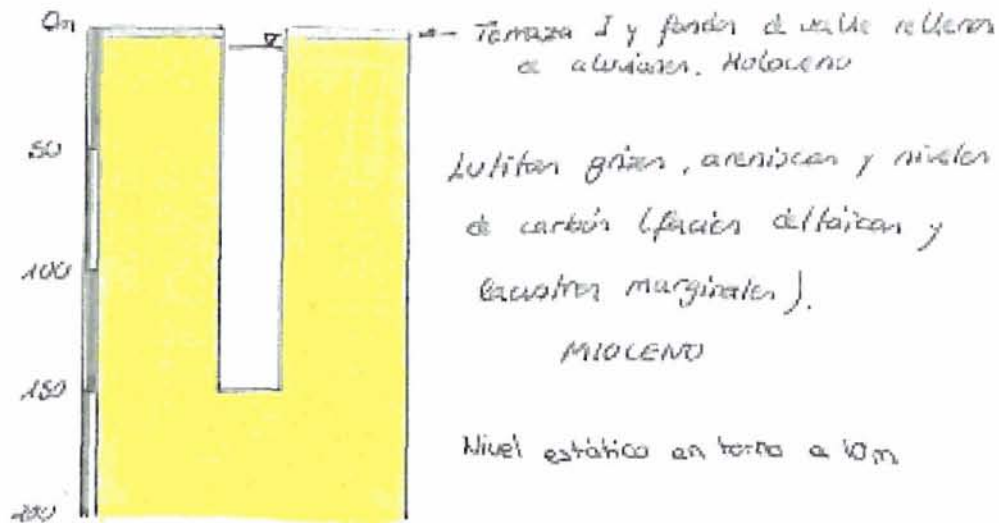 0m
Terraza I y fondos de valle rellenos
de aluviones. Holoceno
50
Lutitas grises, areniscas y niveles
de carbón (facies deltáicas y
lacustres marginales).
100
MIOCENO
150
Nivel estático en torno a 10m
200